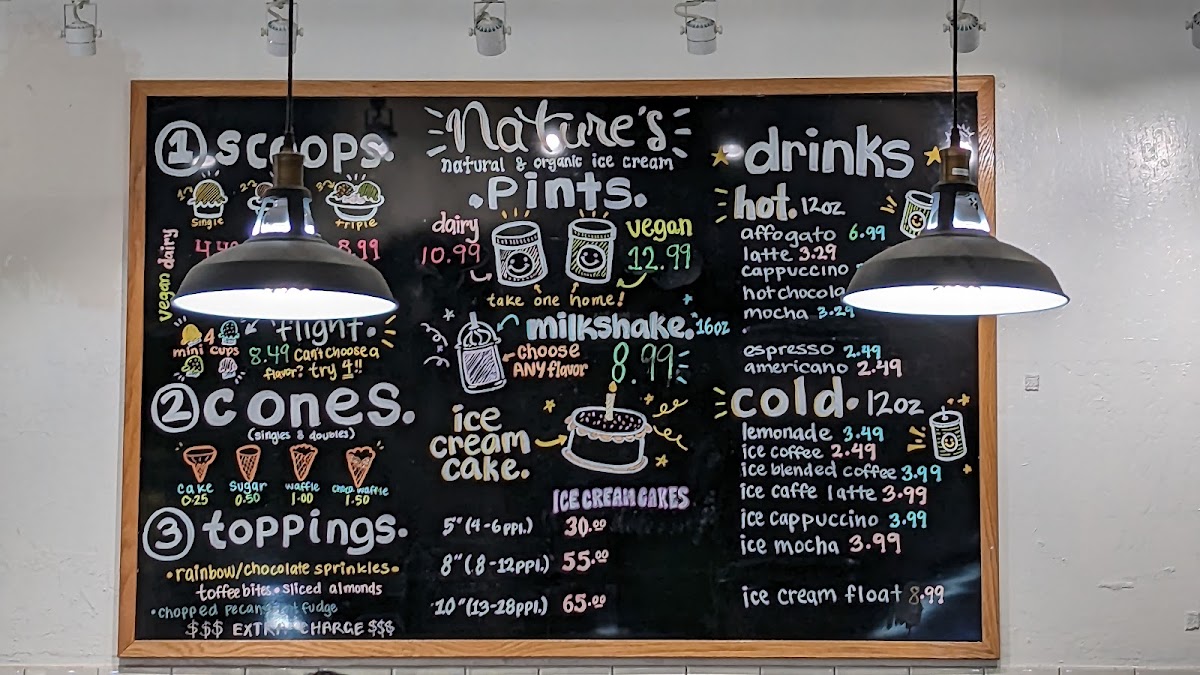 1 scoops.
single
triple
4.49
8.99
vegan dairy
flight.
4 mini cups
8.49 Can't choose a
flavor? try 4!!
2 cones.
(singles & doubles)
cake sugar waffle choco waffle
0.25 0.50 1.00 1.50
3 toppings.
•rainbow/chocolate sprinkles•
toffee bites • sliced almonds
•chopped pecans fudge
$$$ EXTRA CHARGE $$$
Nature's
natural & organic ice cream
.pints.
dairy
10.99
vegan
12.99
take one home!
milkshake. 16oz
choose
ANY flavor
8.99
ice
cream
cake.
ICE CREAM CAKES
5" (4-6 ppl.) 30.00
8" (8-12ppl.) 55.00
10" (13-28ppl.) 65.00
drinks
hot. 12oz
affogato 6.99
latte 3.29
cappuccino
hot chocola
mocha 3.29
espresso 2.49
americano 2.49
cold. 12oz
lemonade 3.49
ice coffee 2.49
ice blended coffee 3.99
ice caffe latte 3.99
ice cappuccino 3.99
ice mocha 3.99
ice cream float 8.99